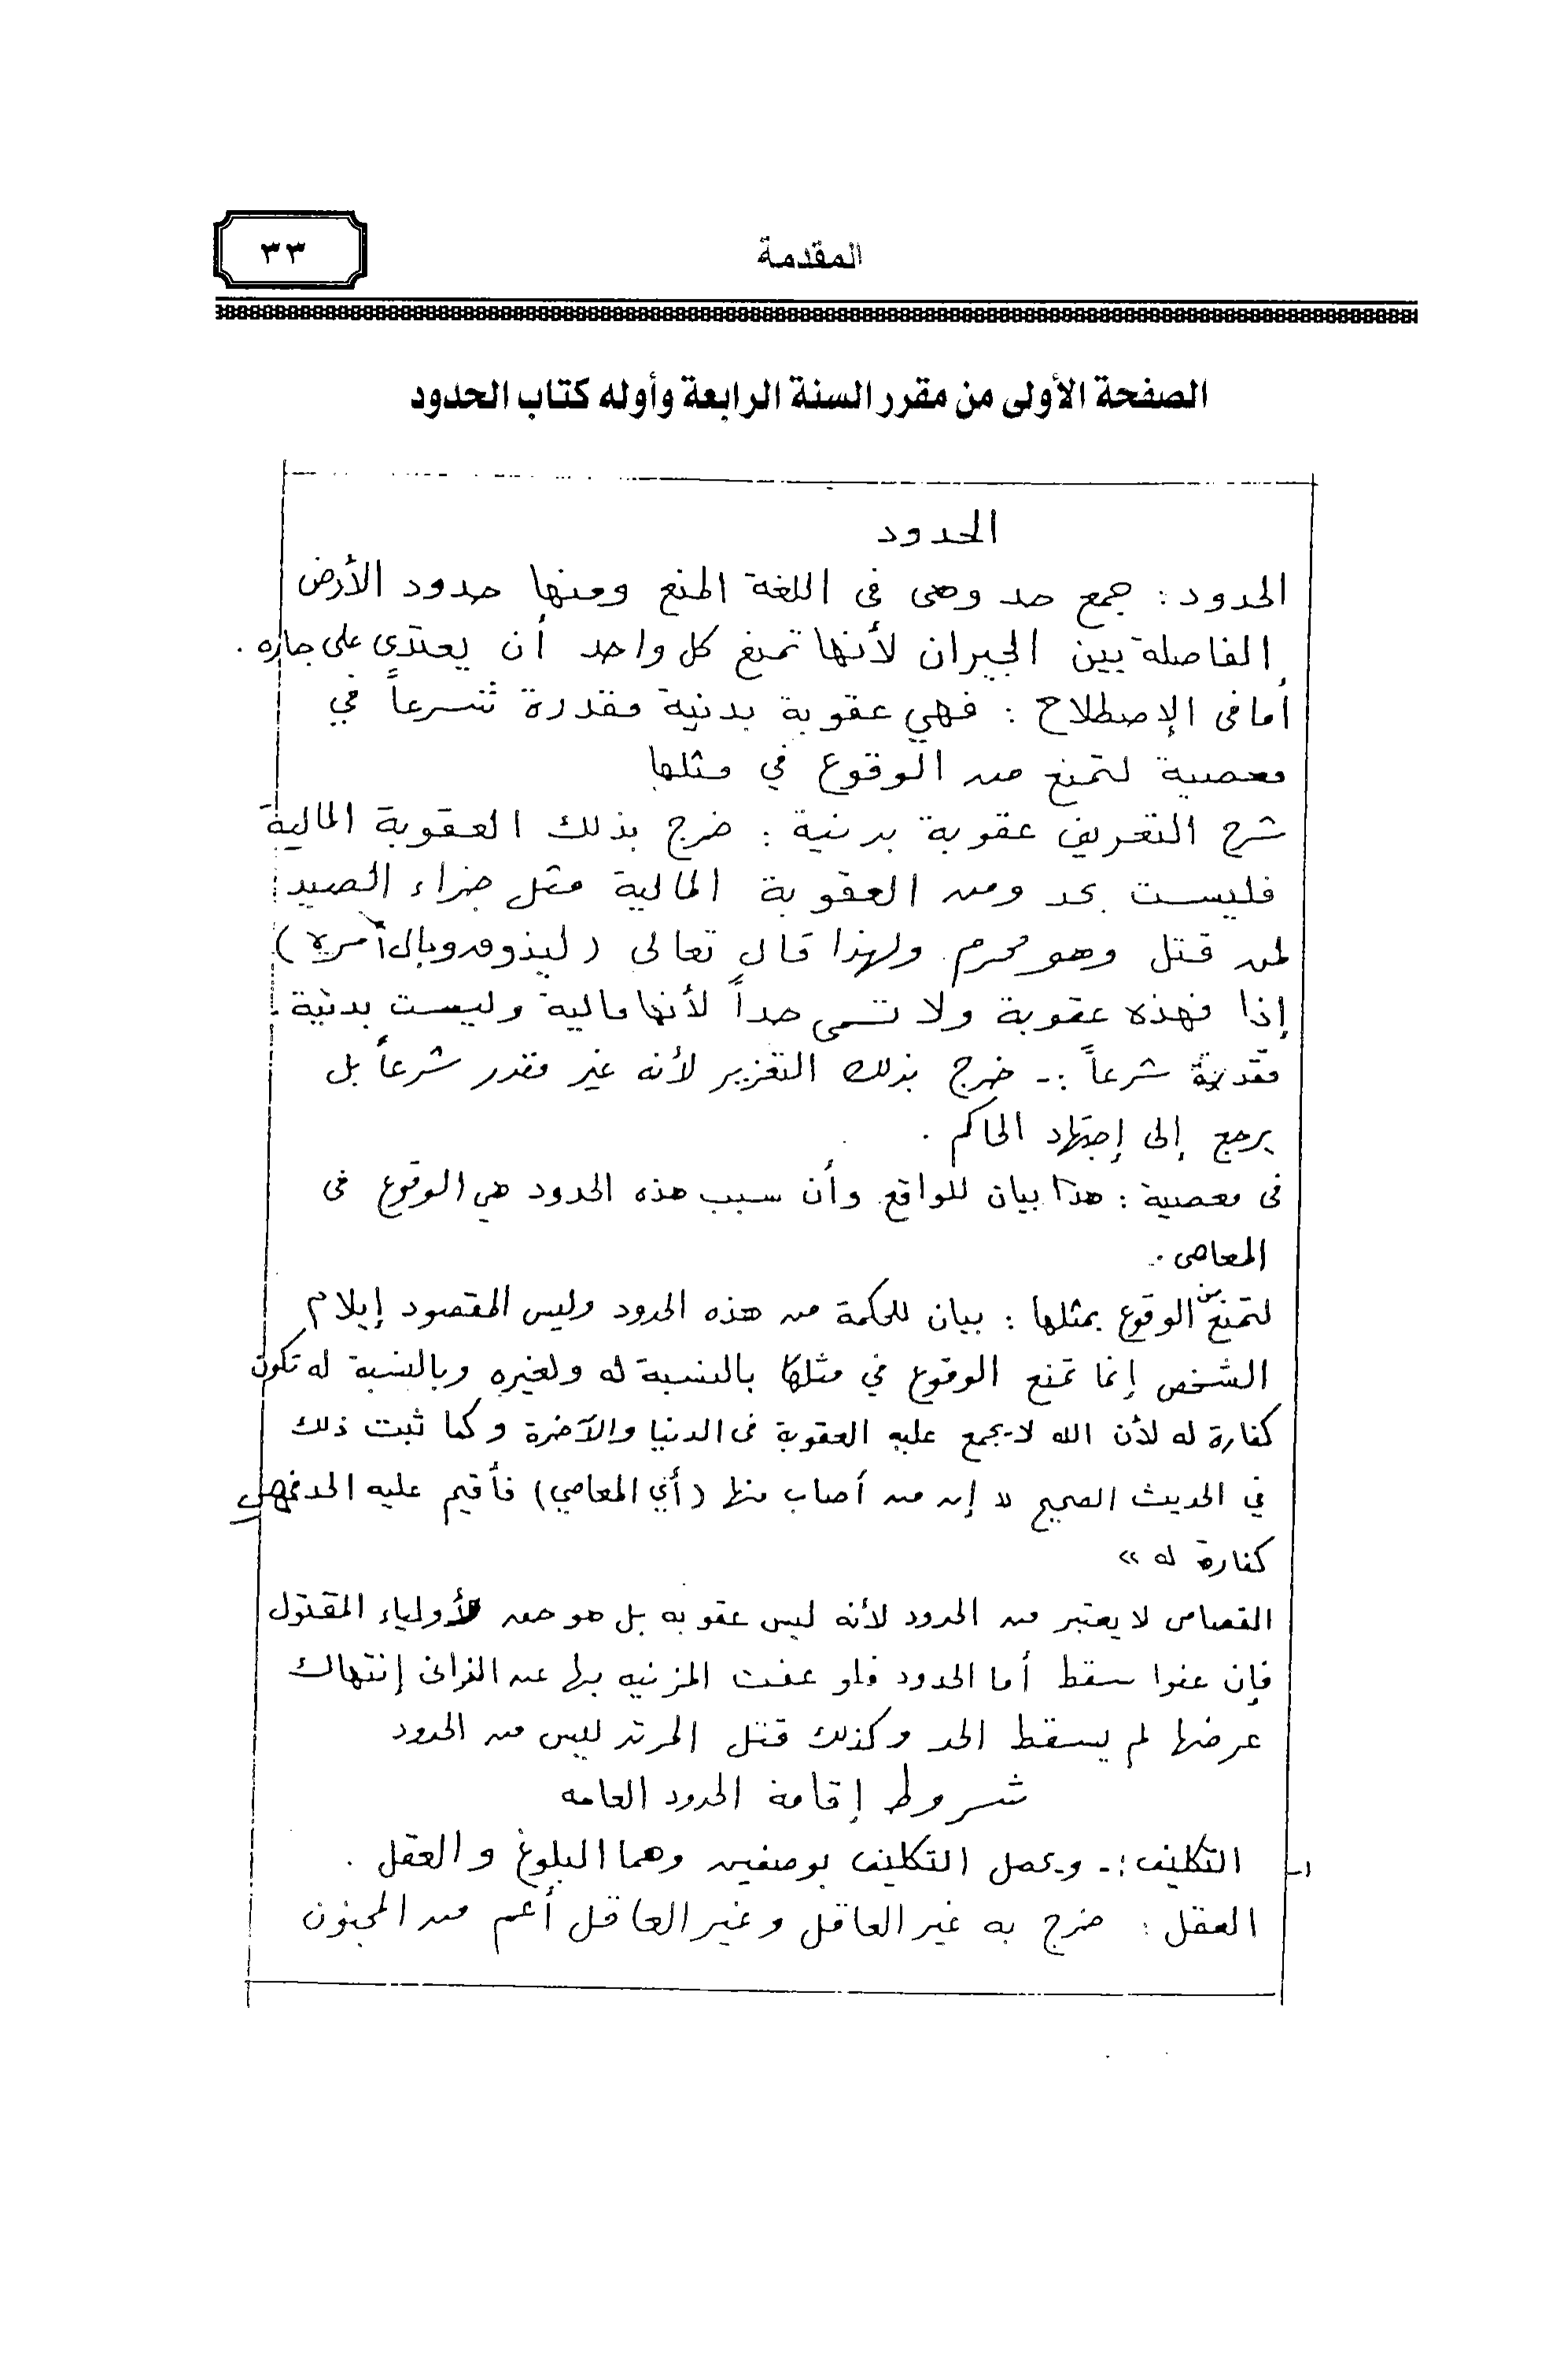 المقدمة
٣٣
الصفحة الأولى من مقرر السنة الرابعة وأوله كتاب الحدود
الحدود
الحدود : جمع حد وهى فى اللغة المنع ومنها حدود الأرض
الفاصلة بين الجيران لأنها تمنع كل واحد أن يعتدى على جاره .
أما فى الإصطلاح : فهي عقوبة بدنية مقدرة شرعاً في
معصية لتمنع من الوقوع في مثلها
شرح التعريف عقوبة بدنية : خرج بذلك العقوبة المالية
فليست بحد ومن العقوبة المالية مثل جزاء الصيد
لمن قتل وهو محرم ولهذا قال تعالى ( ليذوق وبال أمره )
إذا فهذه عقوبة ولا تسمى حداً لأنها مالية وليست بدنية .
مقدرة شرعاً :- خرج بذلك التعزير لأنه غير مقدر شرعاً بل
يرجع إلى إجتهاد الحاكم .
فى معصية : هذا بيان للواقع وأن سبب هذه الحدود هي الوقوع فى
المعاصى .
لتمنع من الوقوع بمثلها : بيان للحكمة من هذه الحدود وليس المقصود إيلام
الشخص إنما تمنع الوقوع في مثلها بالنسبة له ولغيره وبالنسبة له تكون
كفارة له لأن الله لا يجمع عليه العقوبة فى الدنيا والآخرة وكما ثبت ذلك
في الحديث الصحيح « إن من أصاب منها ( أي المعاصي ) فأقيم عليه الحد فهى
كفارة له »
القصاص لا يعتبر من الحدود لأنه ليس عقوبه بل هو حق لأولياء المقتول
فإن عفوا سقط أما الحدود فلو عفت المزنيه بها عن الزانى إنتهاك
عرضها لم يسقط الحد وكذلك قتل المرتد ليس من الحدود
شروط إقامة الحدود العامه
١- التكليف :- ويحصل التكليف بوصفين وهما البلوغ والعقل .
العقل : خرج به غير العاقل وغير العاقل أعم من المجنون